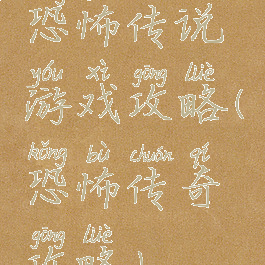 恐怖传说
yóu xì gōng lüè
游戏攻略(
kǒng bù chuán qí
恐怖传奇
gōng lüè
攻略)